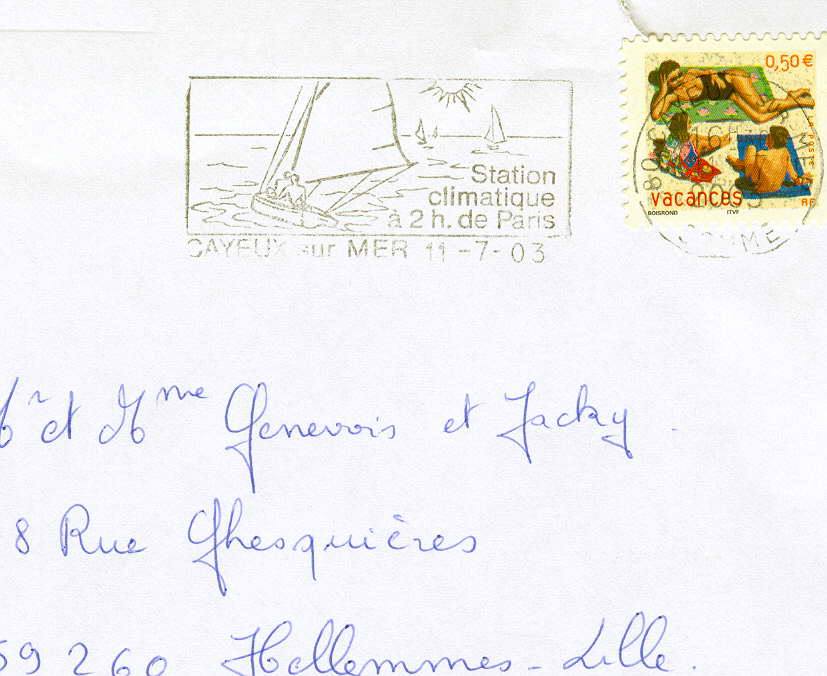 0,50 €
LA POSTE
Station
climatique
à 2 h. de Paris
vacances
RF
BOISROND ITVF
CAYEUX sur MER 11-7-03
80
SOMME
Mr et Mme Genevois et Jacky.
8 Rue Ghesquières
59260 Hellemmes-Lille.